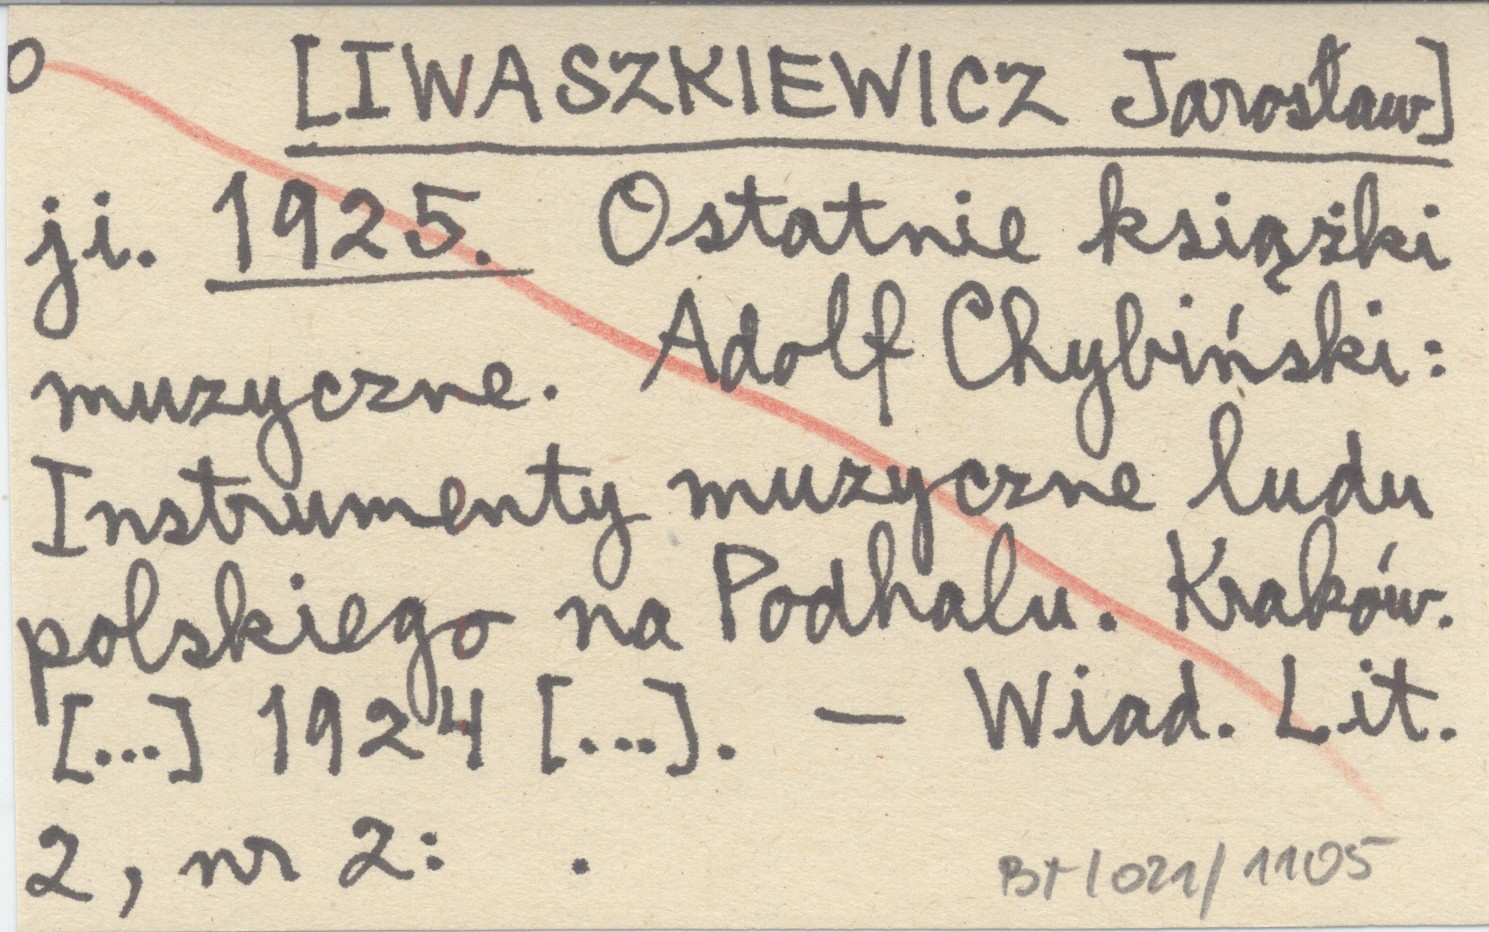 o [IWASZKIEWICZ Jarosław]
ji. 1925. Ostatnie książki
muzyczne. Adolf Chybiński:
Instrumenty muzyczne ludu
polskiego na Podhalu. Kraków.
[...] 1924 [...]. — Wiad. Lit.
2, nr 2: .
Bt/021/1105